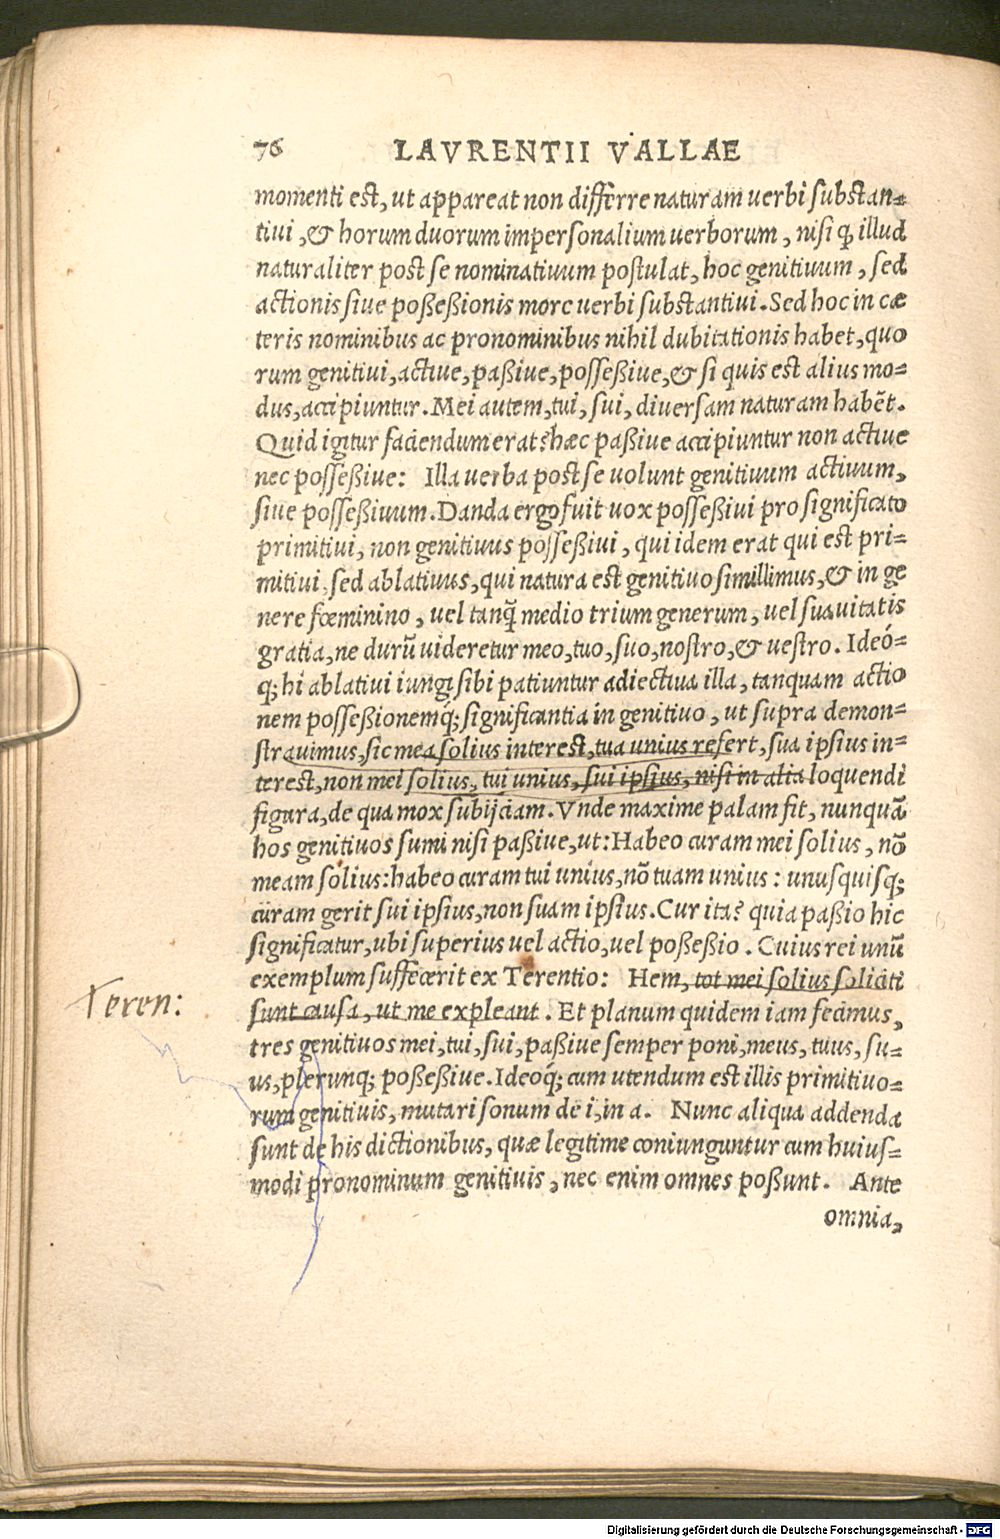 76 LAVRENTII VALLAE
momenti est, ut appareat non differre naturam verbi substan=
tivi, & horum duorum impersonalium verborum, nisi ꝙ illud
naturaliter post se nominativum postulat, hoc genitivum, sed
actionis sive poßeßionis more verbi substantivi. Sed hoc in cæ
teris nominibus ac pronominibus nihil dubitationis habet, quo
rum genitivi, active, paßive, possessive, & si quis est alius mo=
dus, accipiuntur. Mei autem, tui, sui, diversam naturam habēt.
Quid igitur faciendum erat? hæc paßive accipiuntur non active
nec posseßive: Illa verba post se volunt genitivum activum,
sive posseßivum. Danda ergo fuit vox posseßivi pro significato
primitivi, non genitivus posseßivi, qui idem erat qui est pri=
mitivi, sed ablativus, qui natura est genitivo simillimus, & in ge
nere fœminino, vel tanq̃ medio trium generum, vel suavitatis
gratia, ne durū videretur meo, tuo, suo, nostro, & vestro. Ideó=
q; hi ablativi iungi sibi patiuntur adiectiva illa, tanquam actio
nem posseßionemq́; significantia in genitivo, ut supra demon=
stravimus, sic mea solius interest, tua unius refert, sua ipsius in=
terest, non mei solius, tui unius, sui ipsius, nisi in alia loquendi
figura, de qua mox subijciam. Vnde maxime palam fit, nunquā
hos genitivos sumi nisi paßive, ut: Habeo curam mei solius, nō
meam solius: habeo curam tui unius, nō tuam unius: unusquisq;
curam gerit sui ipsius, non suam ipsius. Cur ita? quia paßio hic
significatur, ubi superius vel actio, vel poßeßio. Cuius rei unū
exemplum suffecerit ex Terentio: Hem, tot mei solius soliciti
Teren:
sunt causa, ut me expleant. Et planum quidem iam fecimus,
tres genitivos mei, tui, sui, paßive semper poni, meus, tuus, su=
us, plerunq; poßeßive. Ideoq́; cum utendum est illis primitivo=
rum genitivis, mutari sonum de i, in a. Nunc aliqua addenda
sunt de his dictionibus, quæ legitime coniunguntur cum huius=
modi pronominum genitivis, nec enim omnes poßunt. Ante
omnia,
Digitalisierung gefördert durch die Deutsche Forschungsgemeinschaft - DFG